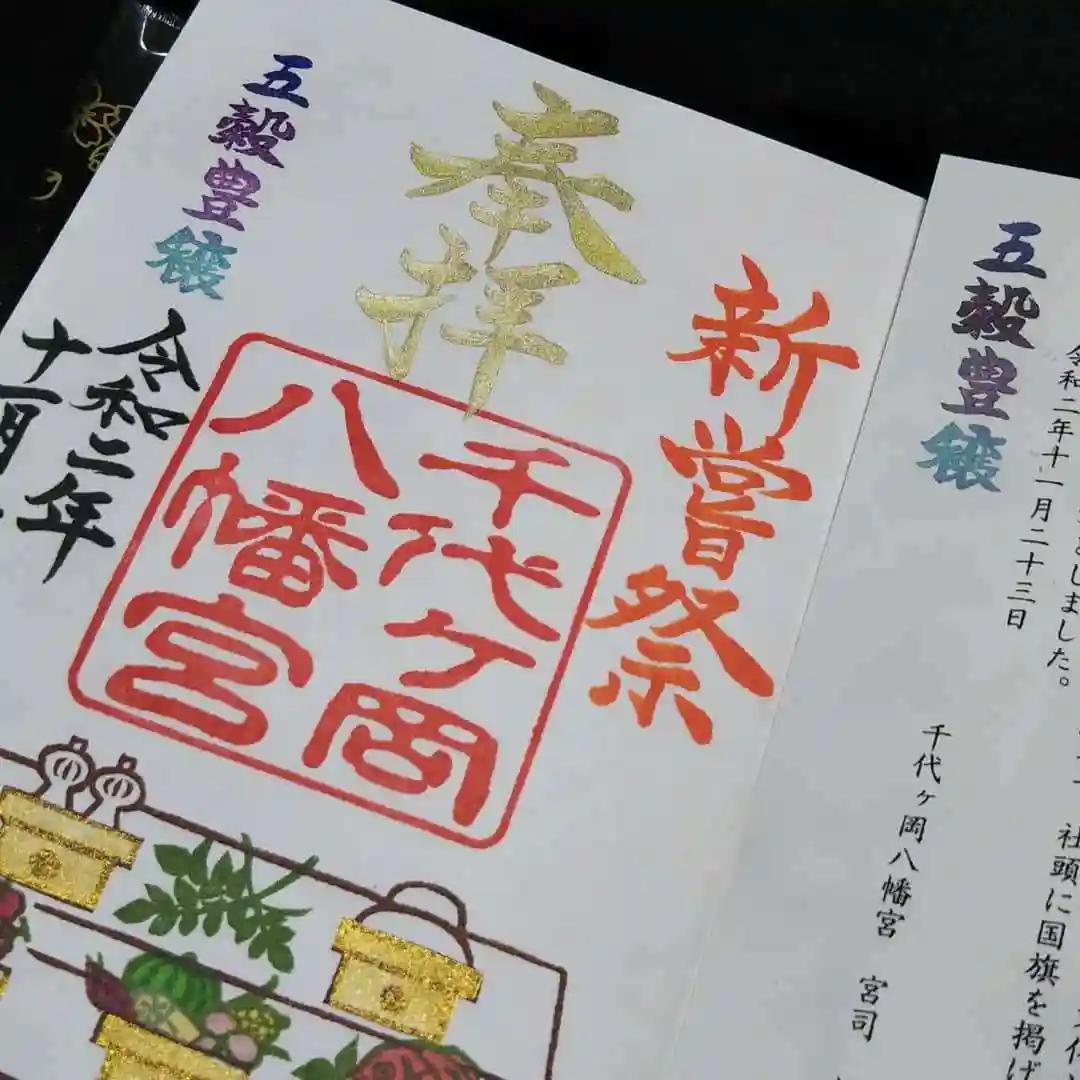 新嘗祭
奉拝
千代ヶ岡
八幡宮
五穀豊穣
令和二年
十一月
社頭に国旗を掲げ
しました。
令和二年十一月二十三日
千代ヶ岡八幡宮 宮司
五穀豊穣